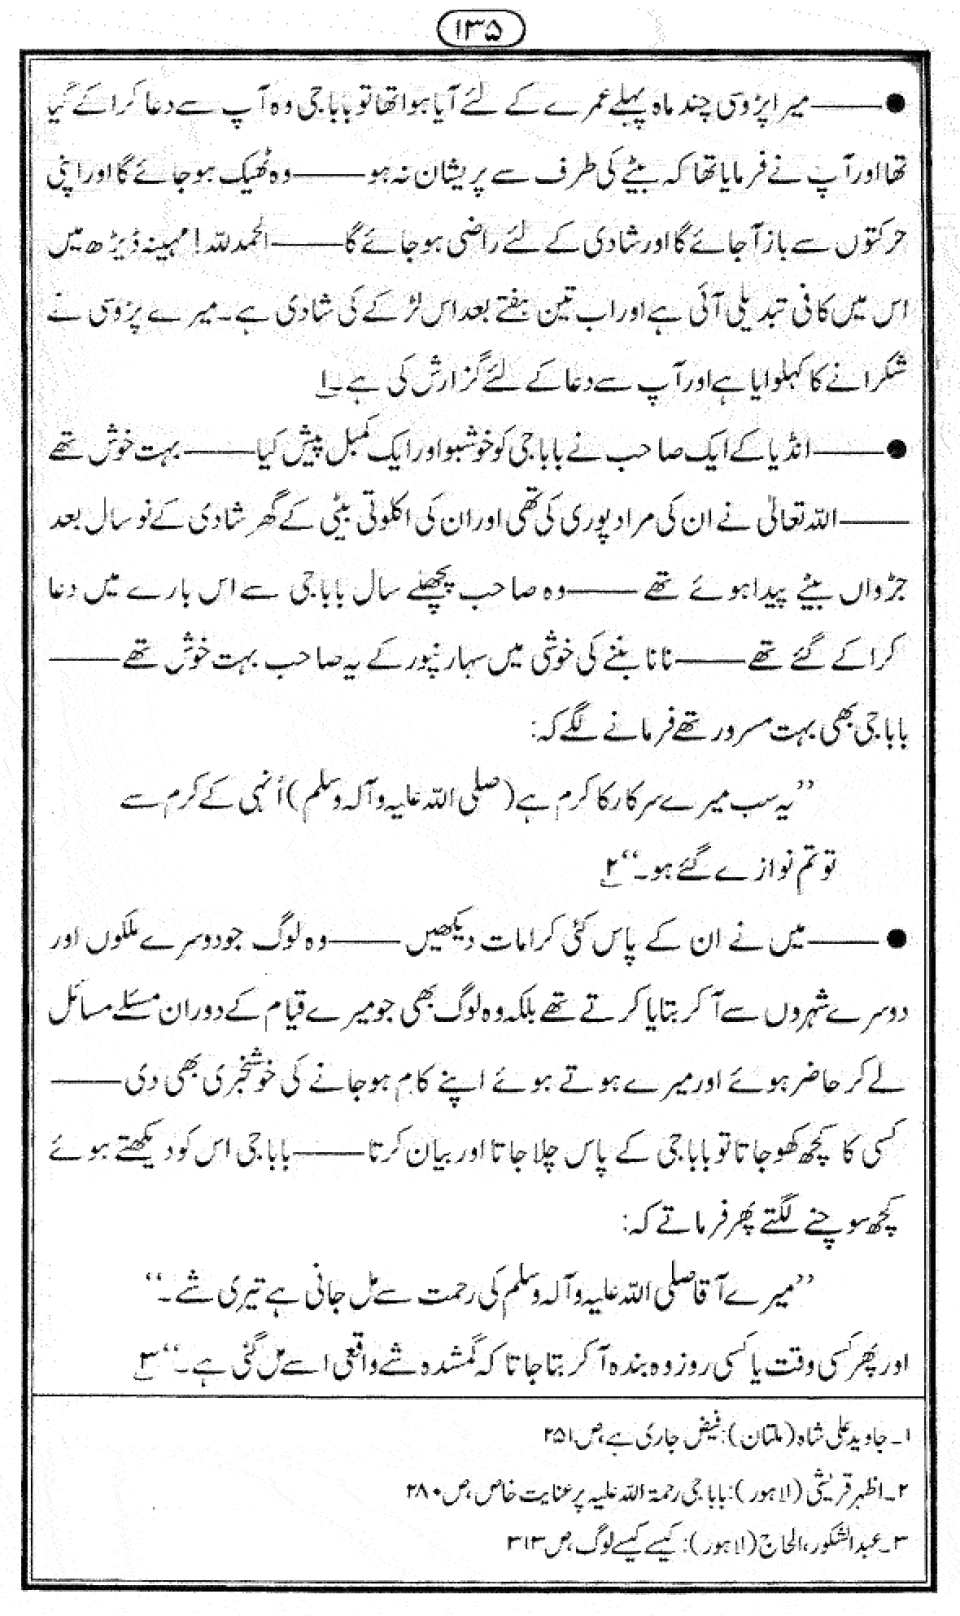 ۱۳۵
● ——— میرا پڑوسی چند ماہ پہلے عمرے کے لئے آیا ہوا تھا تو باباجی وہ آپ سے دعا کرا کے گیا
تھا اور آپ نے فرمایا تھا کہ بیٹے کی طرف سے پریشان نہ ہو ——— وہ ٹھیک ہو جائے گا اور اپنی
حرکتوں سے باز آجائے گا اور شادی کے لئے راضی ہو جائے گا ——— الحمدللہ! مہینہ ڈیڑھ میں
اس میں کافی تبدیلی آئی ہے اور اب تین ہفتے بعد اس لڑکے کی شادی ہے۔ میرے پڑوسی نے
شکرانے کا کہلوایا ہے اور آپ سے دعا کے لئے گزارش کی ہے۔۱
● ——— انڈیا کے ایک صاحب نے باباجی کو خوشبو اور ایک کمبل پیش کیا ——— بہت خوش تھے
——— اللہ تعالیٰ نے ان کی مراد پوری کی تھی اور ان کی اکلوتی بیٹی کے گھر شادی کے نو سال بعد
جڑواں بیٹے پیدا ہوئے تھے ——— وہ صاحب پچھلے سال باباجی سے اس بارے میں دعا
کرا کے گئے تھے ——— نانا بننے کی خوشی میں سہارنپور کے یہ صاحب بہت خوش تھے ———
باباجی بھی بہت مسرور تھے فرمانے لگے کہ:
’’یہ سب میرے سرکار کا کرم ہے (صلی اللہ علیہ وآلہ وسلم) اُنہی کے کرم سے
تو تم نوازے گئے ہو۔‘‘۲
● ——— میں نے ان کے پاس کئی کرامات دیکھیں ——— وہ لوگ جو دوسرے ملکوں اور
دوسرے شہروں سے آکر بتایا کرتے تھے بلکہ وہ لوگ بھی جو میرے قیام کے دوران مسئلے مسائل
لے کر حاضر ہوئے اور میرے ہوتے ہوئے اپنے کام ہو جانے کی خوشخبری بھی دی ———
کسی کا کچھ کھو جاتا تو باباجی کے پاس چلا جاتا اور بیان کرتا ——— باباجی اس کو دیکھتے ہوئے
کچھ سوچنے لگتے پھر فرماتے کہ:
’’میرے آقا صلی اللہ علیہ وآلہ وسلم کی رحمت سے مل جانی ہے تیری شے۔‘‘
اور پھر کسی وقت یا کسی روز وہ بندہ آکر بتا جاتا کہ گمشدہ شے واقعی اسے مل گئی ہے۔‘‘۳
۱۔ جاوید علی شاہ (ملتان): فیض جاری ہے، ص ۲۵۱
۲۔ اظہر قریشی (لاہور): باباجی رحمۃ اللہ علیہ پر عنایت خاص، ص ۲۸۰
۳۔ عبدالشکور، الحاج (لاہور): کیسے کیسے لوگ، ص ۳۱۳